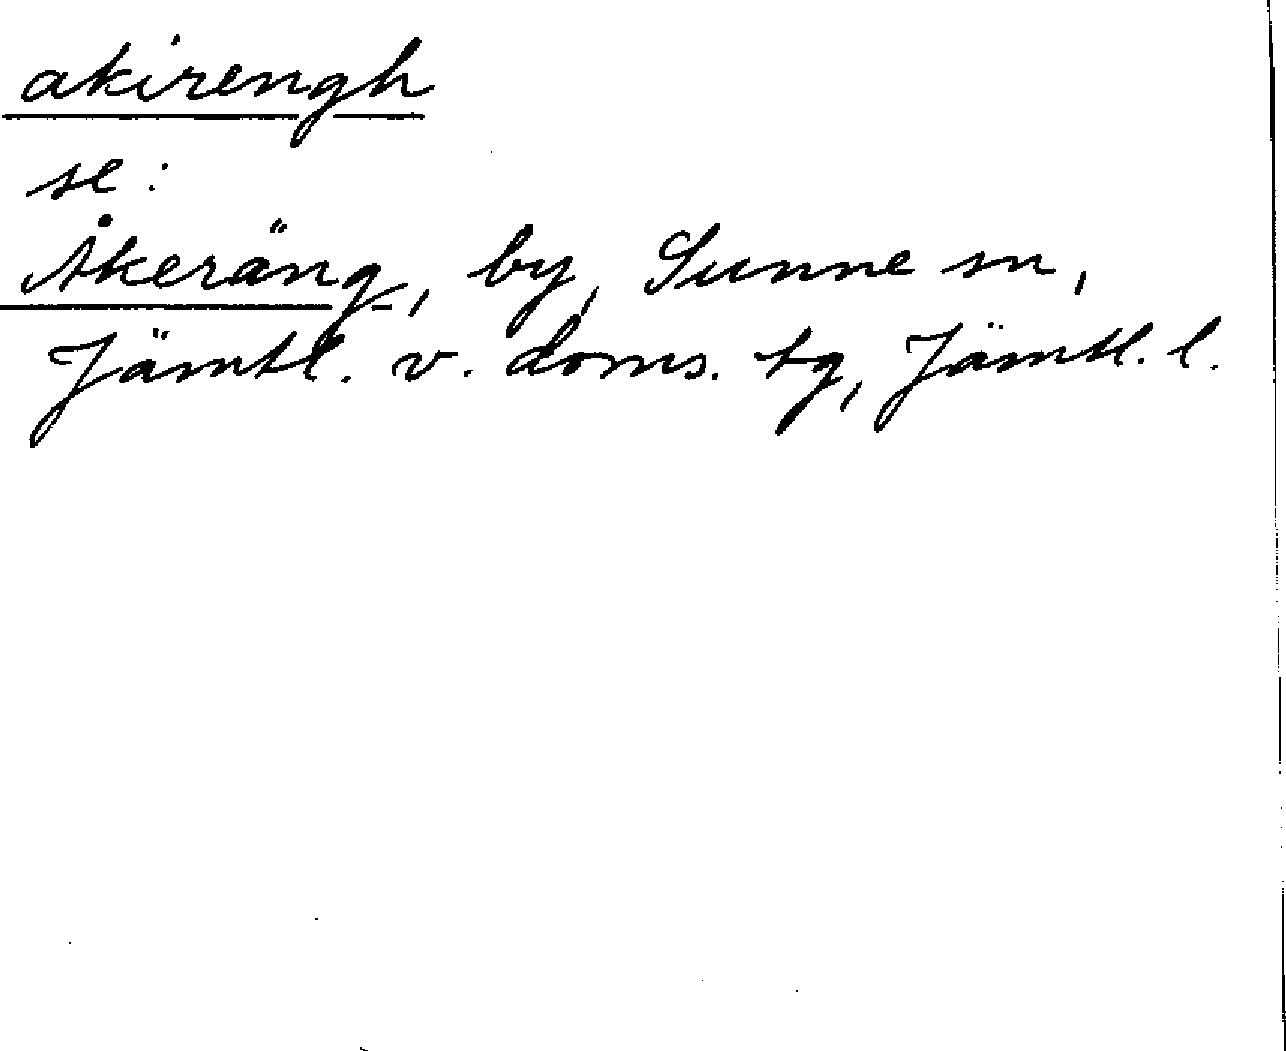 akirengh
se:
Åkeräng, by, Sunne sn,
Jämtl. v. doms. tg, Jämtl. l.